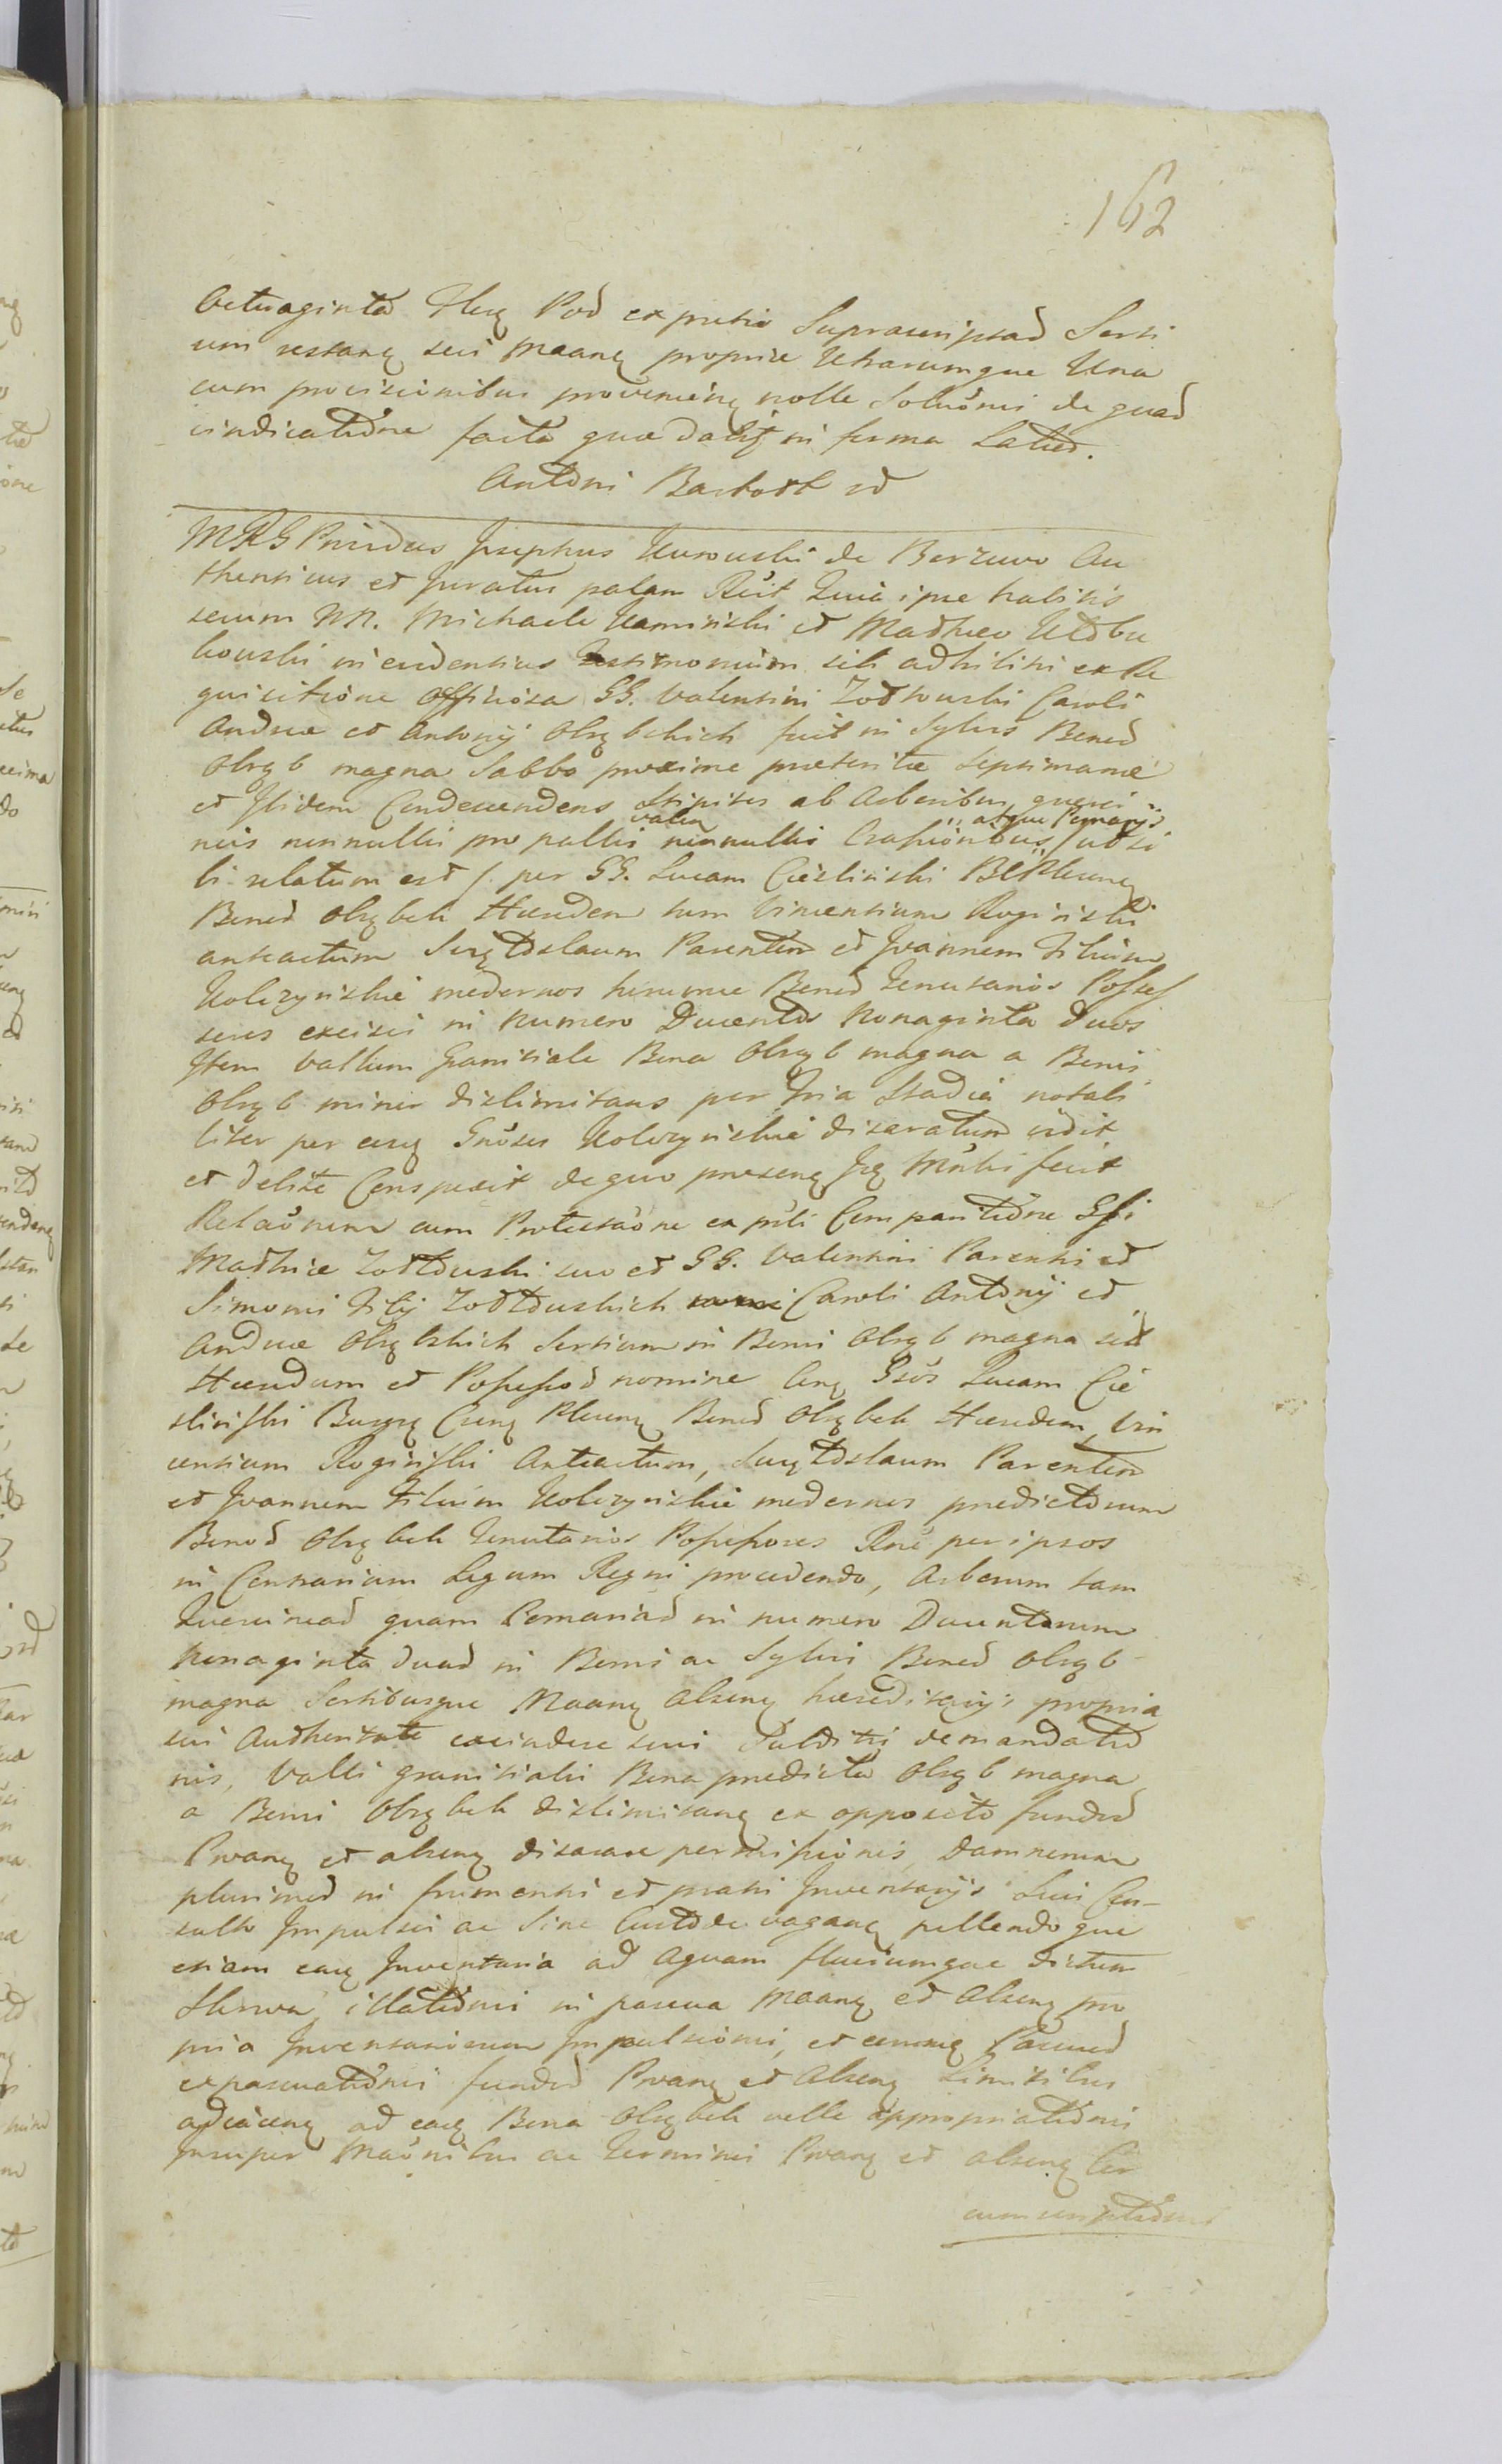 162
Octuaginta Flor Pol ex pretio Suprascriptad Sorti
um restan seu Maan propriæ Utrarumque Una
cum provisionibus provenien nolle Solu͠onis de quad
vindicatione facta quæ dabit in forma Latiod.
Antoni Barthold
MRG Providus Josephus Kurowski de Berzewo Au
thenticus et Juratus palam Rec͠it Quia ipse habitis
secum NN. Michaele Kaminski et Mathæo
kowski in evidentius testimonium sibi adhibitis ex Re
quisitione officiosa GG. Valentini Caroli
Andreæ et Antonij Obrębskich fuit in Sylvis Bonod
Obręb magna Sabbo proxime præteritæ septimanæ
et Ibidem Condescendens Stipites ab Arboribus querci
neis nonnullis pro pallis valen nonnullis atque Pomarijs ut si
bi relatum est /. per GG. Lucam Ciesliński
Bonod Obrębek Hæredem tum Vincentium Rogiński
anteactum Parentem et Joannem Filium
Kolczyńskie modernos hunc Bonod Tenutarios Posses
sores excisis in numero Ducentos Nonaginta duos
Item Vallum Graniciale Bona Obręb magna a Bonis
Obręb minor dislimitans per tria Stadia notabi
liter per eosq Gn͠osos Kolczyńskie disaratum vidit
et debite Conspexit de quo præsens Jq M͠nki fecit
Rela͠onem cum Protesta͠one ex p͠nti Comparitione Gsi
Mathiæ suo et GG. Valentini Parentis et
Simonis Filij Caroli Antonij et
Andreæ Obrębskich Sortium in Bonis Obręb magna sitd
Hæredum et Possessod nomine Con Gsos Lucam Cie
sliński Burgr Bonod Obrębek Hæredem, Vin
centium Rogiński Anteactum, Parentem
et Joannem Filium Kolczyńskie modernos prædictorum
Bonod Obrębek Tenutarios Possessores R͠ne per ipsos
in Contrarium Legum Regni procedendo, Arborum tam
Querciniad quam Pomariad in numero Ducentorum
Nonaginta duad in Bonis ac Sylvis Bonod Obręb
magna Sortibusque Maan Alsen hæreditarijs propria
sui Authoritate excindere seu Subditis demandatio
nis, Valli granicialis Bona prædicta Obręb magna
a Bonis Obrębek dislimitan ex opposito fundod
Pwan et alsen disarare permissionis, Damnorum
plurimod in frumentis et pratis Inventarijs Sui Con-
sulto Impulsis ac Sine Custode vagan pellendoque
etiam eaq Inventaria ad Aquam fluviumque dictum
Slurwa, illationis in pascua Maan et Alsen pro
pria Inventariorum Impulsionis, et eorumq Pascuod
expascuationis fundod Pwan et Alsen Limitibus
adjacen ad eaq Bona Obrębek velle appropriationis
Insuper Ma͠onibus ac Terminis Pwan et alsen Cir
cumscriptionis